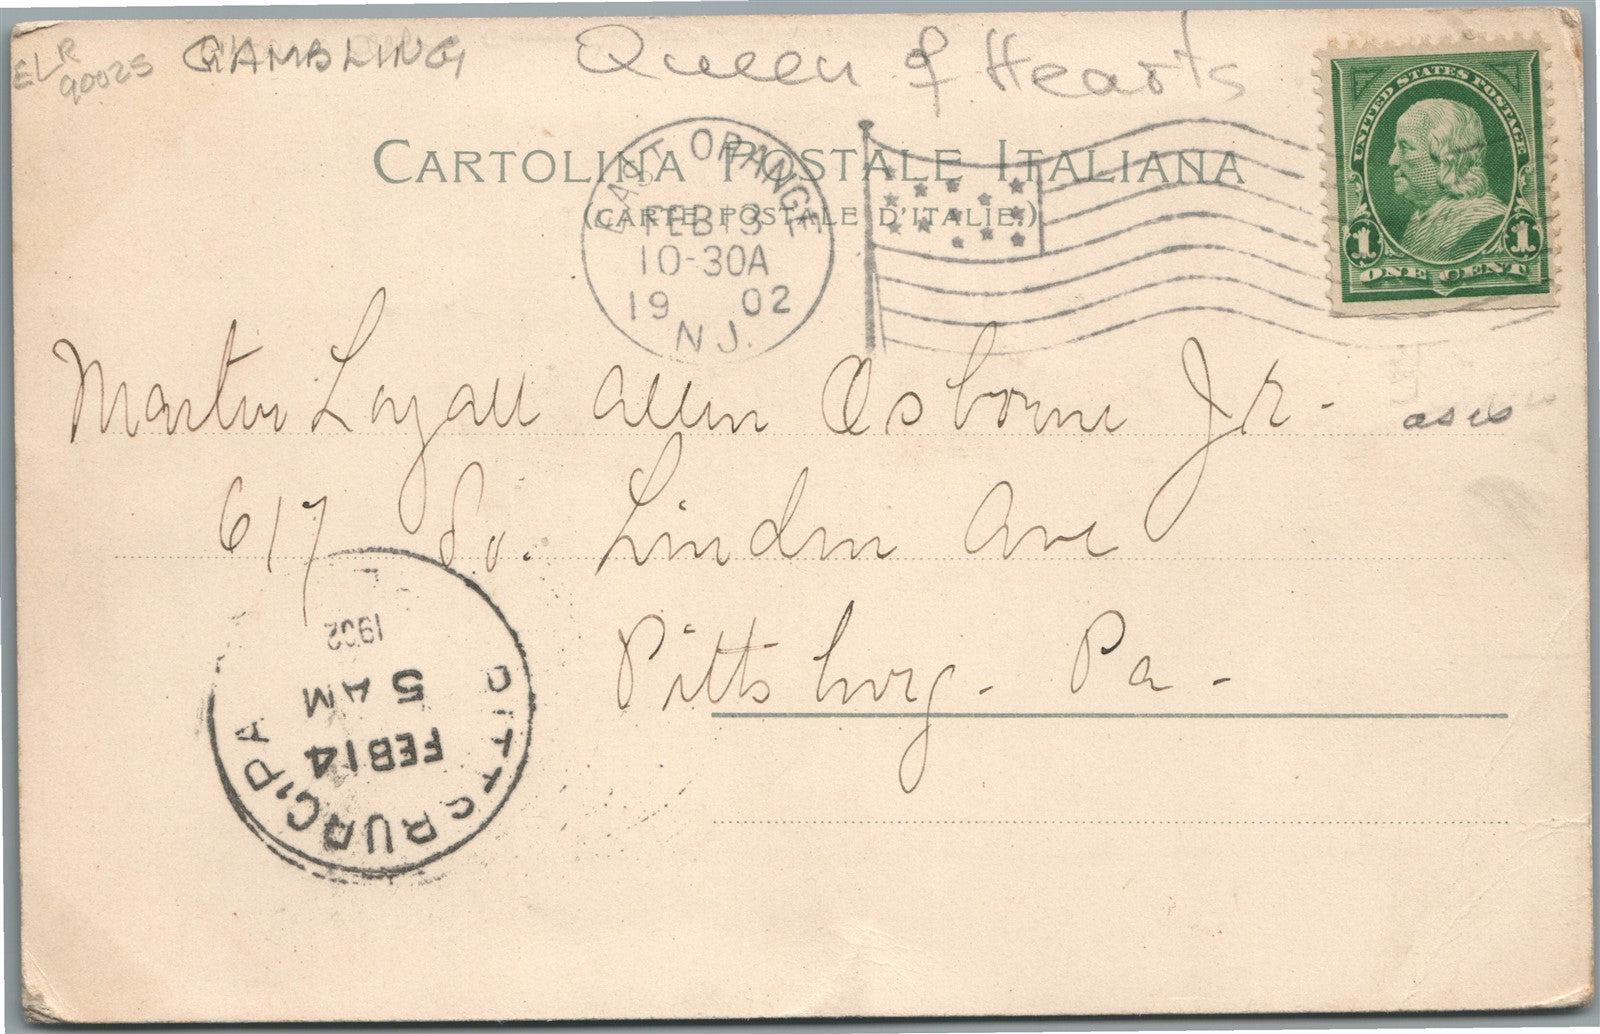 ELR
90025
GAMBLING
Queen of Hearts
CARTOLINA POSTALE ITALIANA
(CARTE POSTALE D'ITALIE.)
EAST ORANGE
FEB 13
10-30A
1902
N.J.
UNITED STATES POSTAGE
1 1
ONE CENT
Master Loyall Allen Osborne Jr.
as is
617 So. Linden Ave
Pittsburg. Pa.
PITTSBURG, PA
FEB 14
5 AM
1902